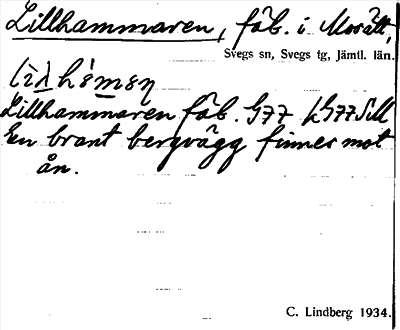 Lillhammaren, fäb. i Morätt,
Svegs sn, Svegs tg, Jämtl. län.
Lillhammaren fäb. G77 LG77SM
En brant bergvägg finnes mot
ån.
C. Lindberg 1934.